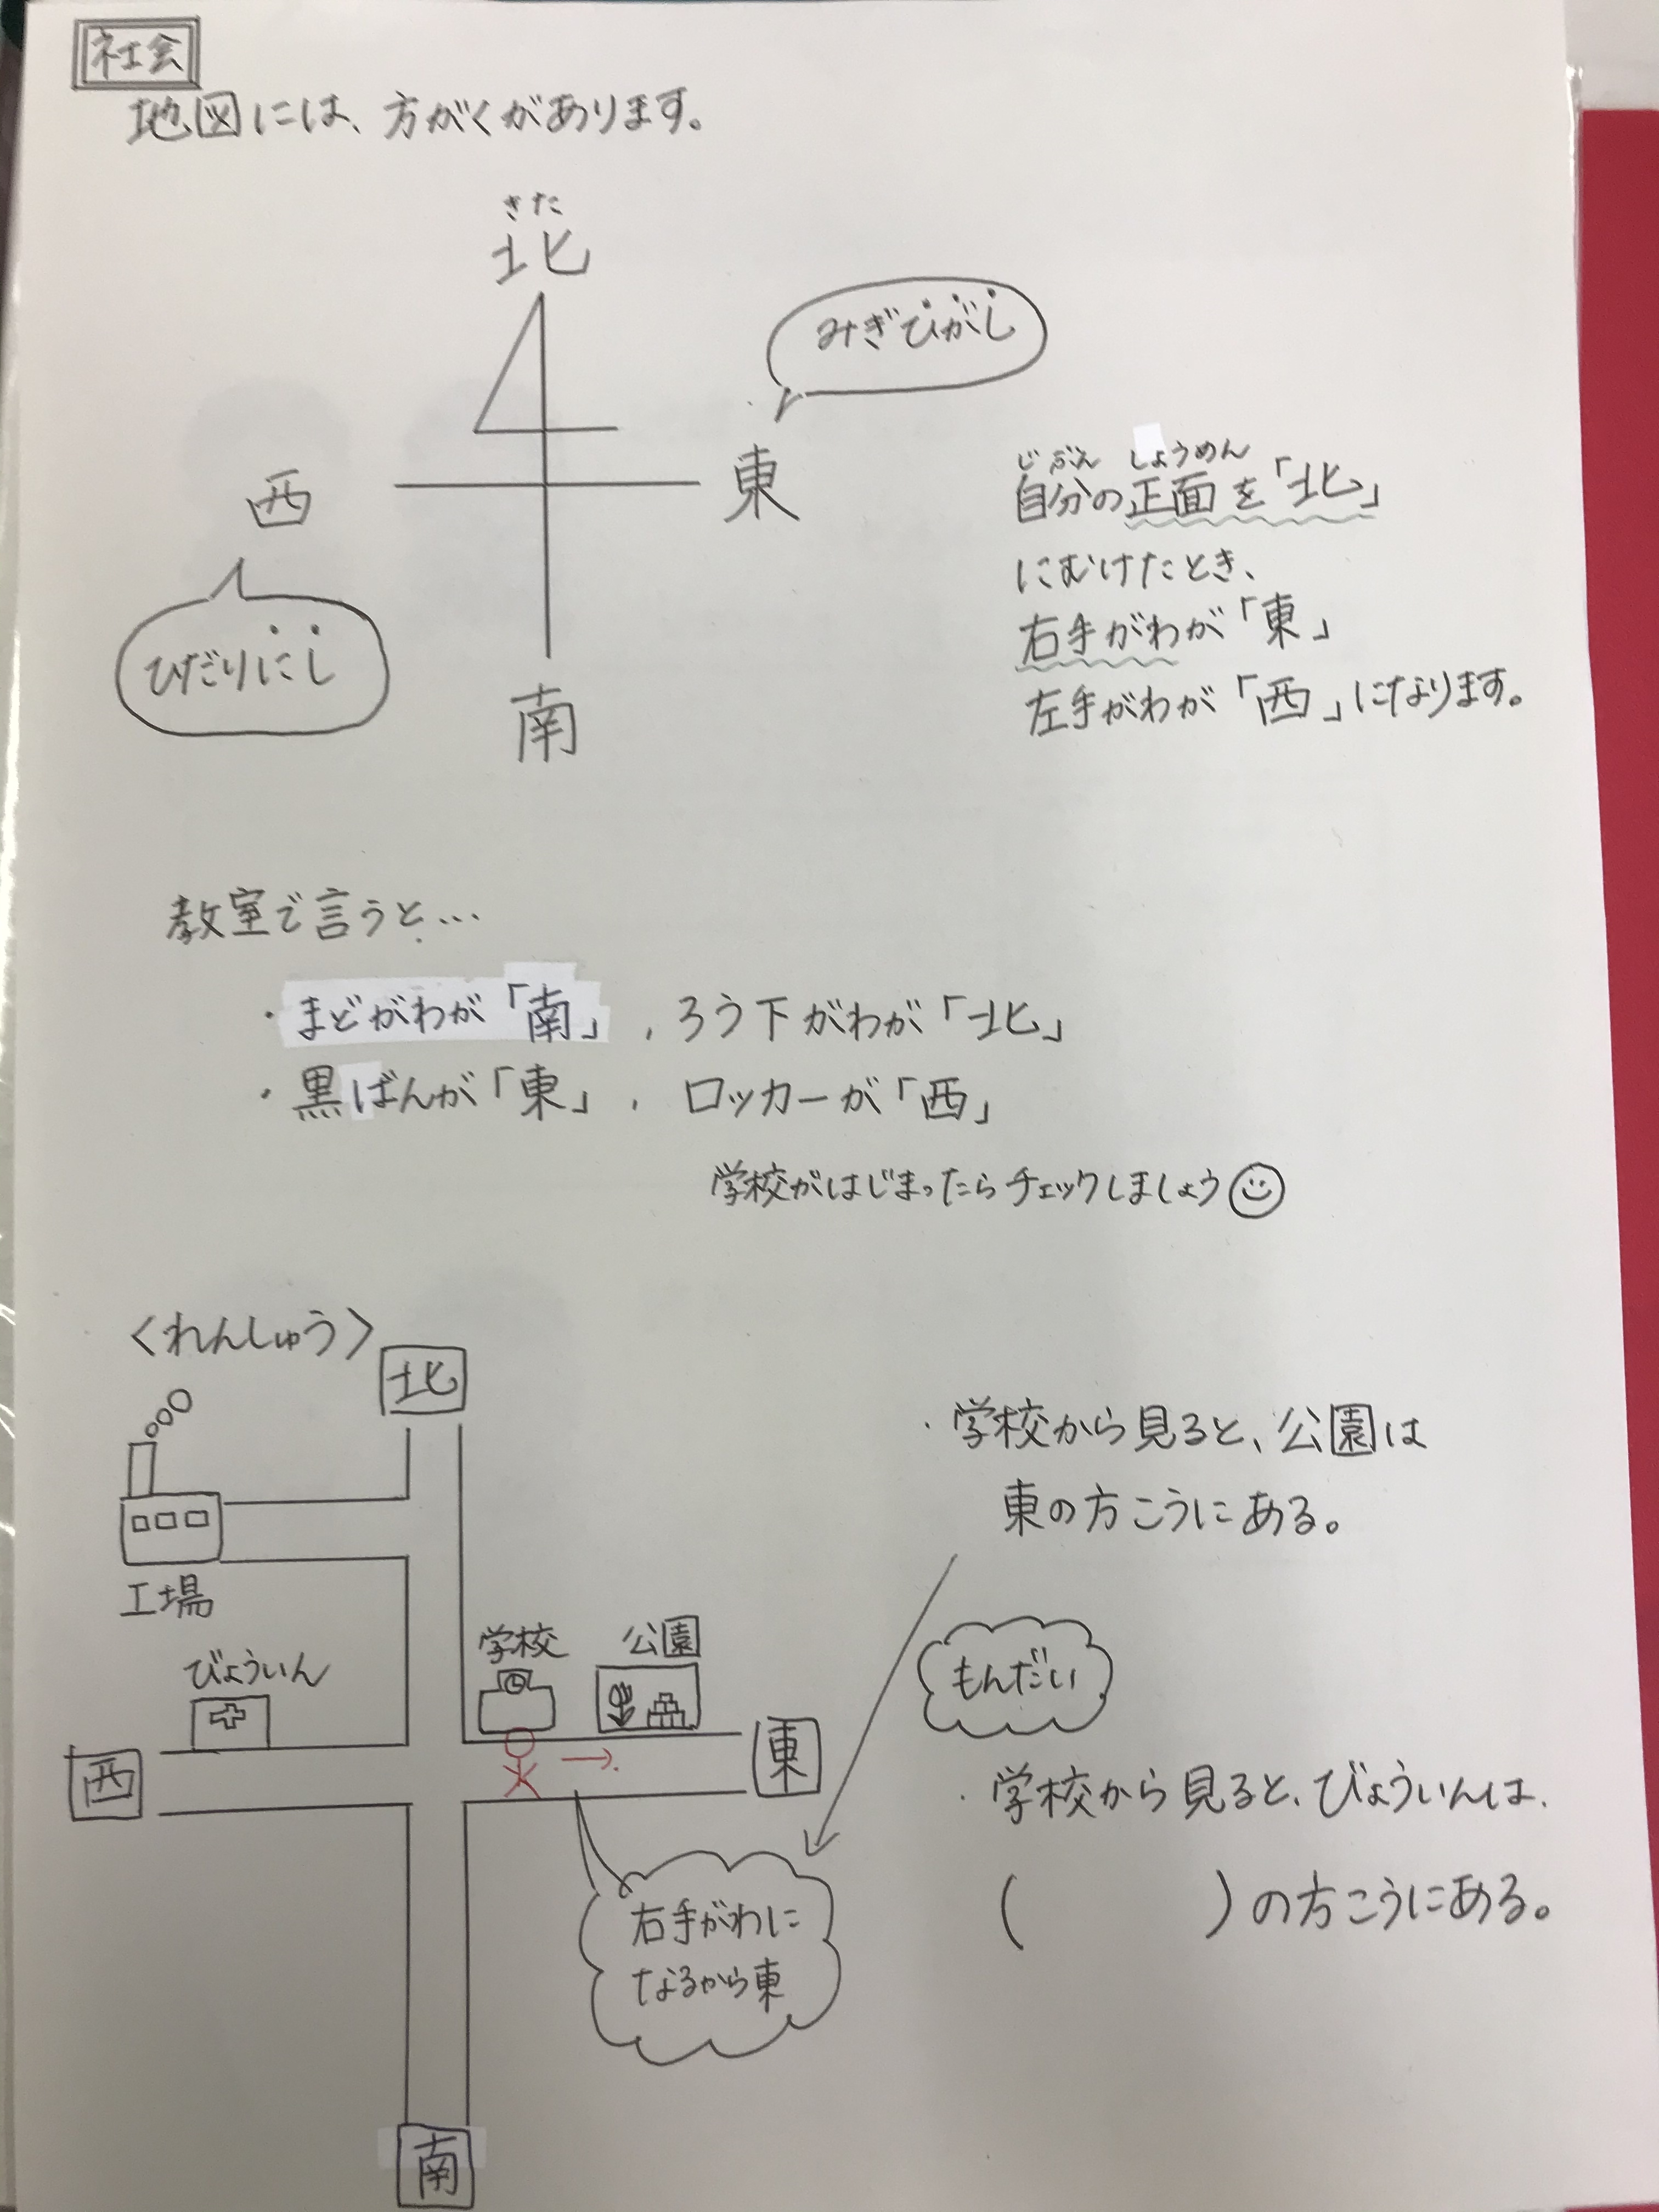 社会
地図には、方がくがあります。
きた
北
みぎひがし
西
東
ひだりにし
南
じぶん しょうめん
自分の正面を「北」
にむけたとき、
右手がわが「東」
左手がわが「西」になります。
教室で言うと…
・まどがわが「南」、ろう下がわが「北」
・黒ばんが「東」、ロッカーが「西」
学校がはじまったらチェックしましょう
〈れんしゅう〉
北
工場
びょういん
学校
公園
西
東
右手がわに
なるから東
南
・学校から見ると、公園は
東の方こうにある。
もんだい
・学校から見ると、びょういんは、
(　　　)の方こうにある。